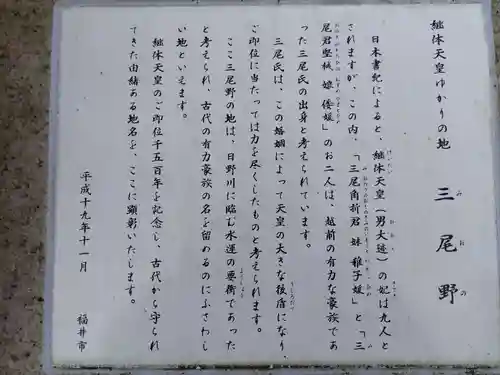 継体天皇ゆかりの地
三尾野
み お の
日本書紀によると、継体天皇（男大迹）の妃は九人と
されますが、この内、「三尾角折君 妹 稚子媛」と「三
尾君堅楲 娘 倭媛」のお二人は、越前の有力な豪族であ
った三尾氏の出身と考えられています。
三尾氏は、この婚姻によって天皇の大きな後盾になり、
ご即位に当たっては力を尽くしたものと考えられます。
ここ三尾野の地は、日野川に臨む水運の要衝であった
と考えられ、古代の有力豪族の名を留めるのにふさわし
い地といえます。
継体天皇のご即位千五百年を記念し、古代から守られ
てきた由緒ある地名を、ここに顕彰いたします。
平成十九年十一月
福井市